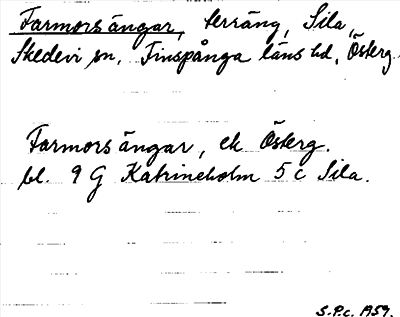 Farmorsängar, terräng, Sila,
Skedevi sn, Finspånga läns hd, Österg.
Farmorsängar, ek Österg.
bl. 9 G Katrineholm 5 c Sila.
S.P.c. 1959.